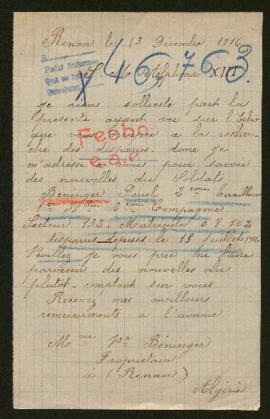 Renan le 13 Décembre 1916
46763
A S. M. Alphonse XIII
Je vous sollicite part la
présente ayant vue sur l'Echo
que vous à la recher
che des disparus. donc je
m'adresse à vous pour savoir
des nouvelles du Soldat
Beninger Paul 2eme Tirailleurs
Compagnie
Secteur 132 Matricule
disparus depuis le 18 Juillet 1916.
Veuillez je vous prie me faire
parvenir des nouvelles au
plutot. comptant sur vous
Recevez mes meilleurs
remerciements à l'avance
Fecho
Mme Vve Beninger
Propriétaire
à (Renan)
Algérie